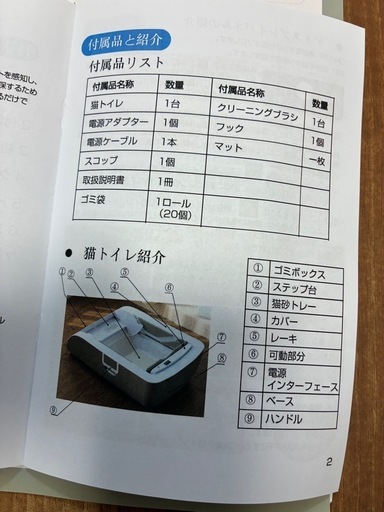 付属品と紹介
付属品リスト
付属品名称 数量 付属品名称 数量
猫トイレ 1台 クリーニングブラシ 1台
電源アダプター 1個 フック 1個
電源ケーブル 1本 マット 一枚
スコップ 1個
取扱説明書 1冊
ゴミ袋 1ロール
(20個)
● 猫トイレ紹介
① ② ③ ④ ⑤ ⑥ ⑦ ⑧ ⑨
① ゴミボックス
② ステップ台
③ 猫砂トレー
④ カバー
⑤ レーキ
⑥ 可動部分
⑦ 電源
インターフェース
⑧ ベース
⑨ ハンドル
2
トを感知し、
保するため
るだけで
ル